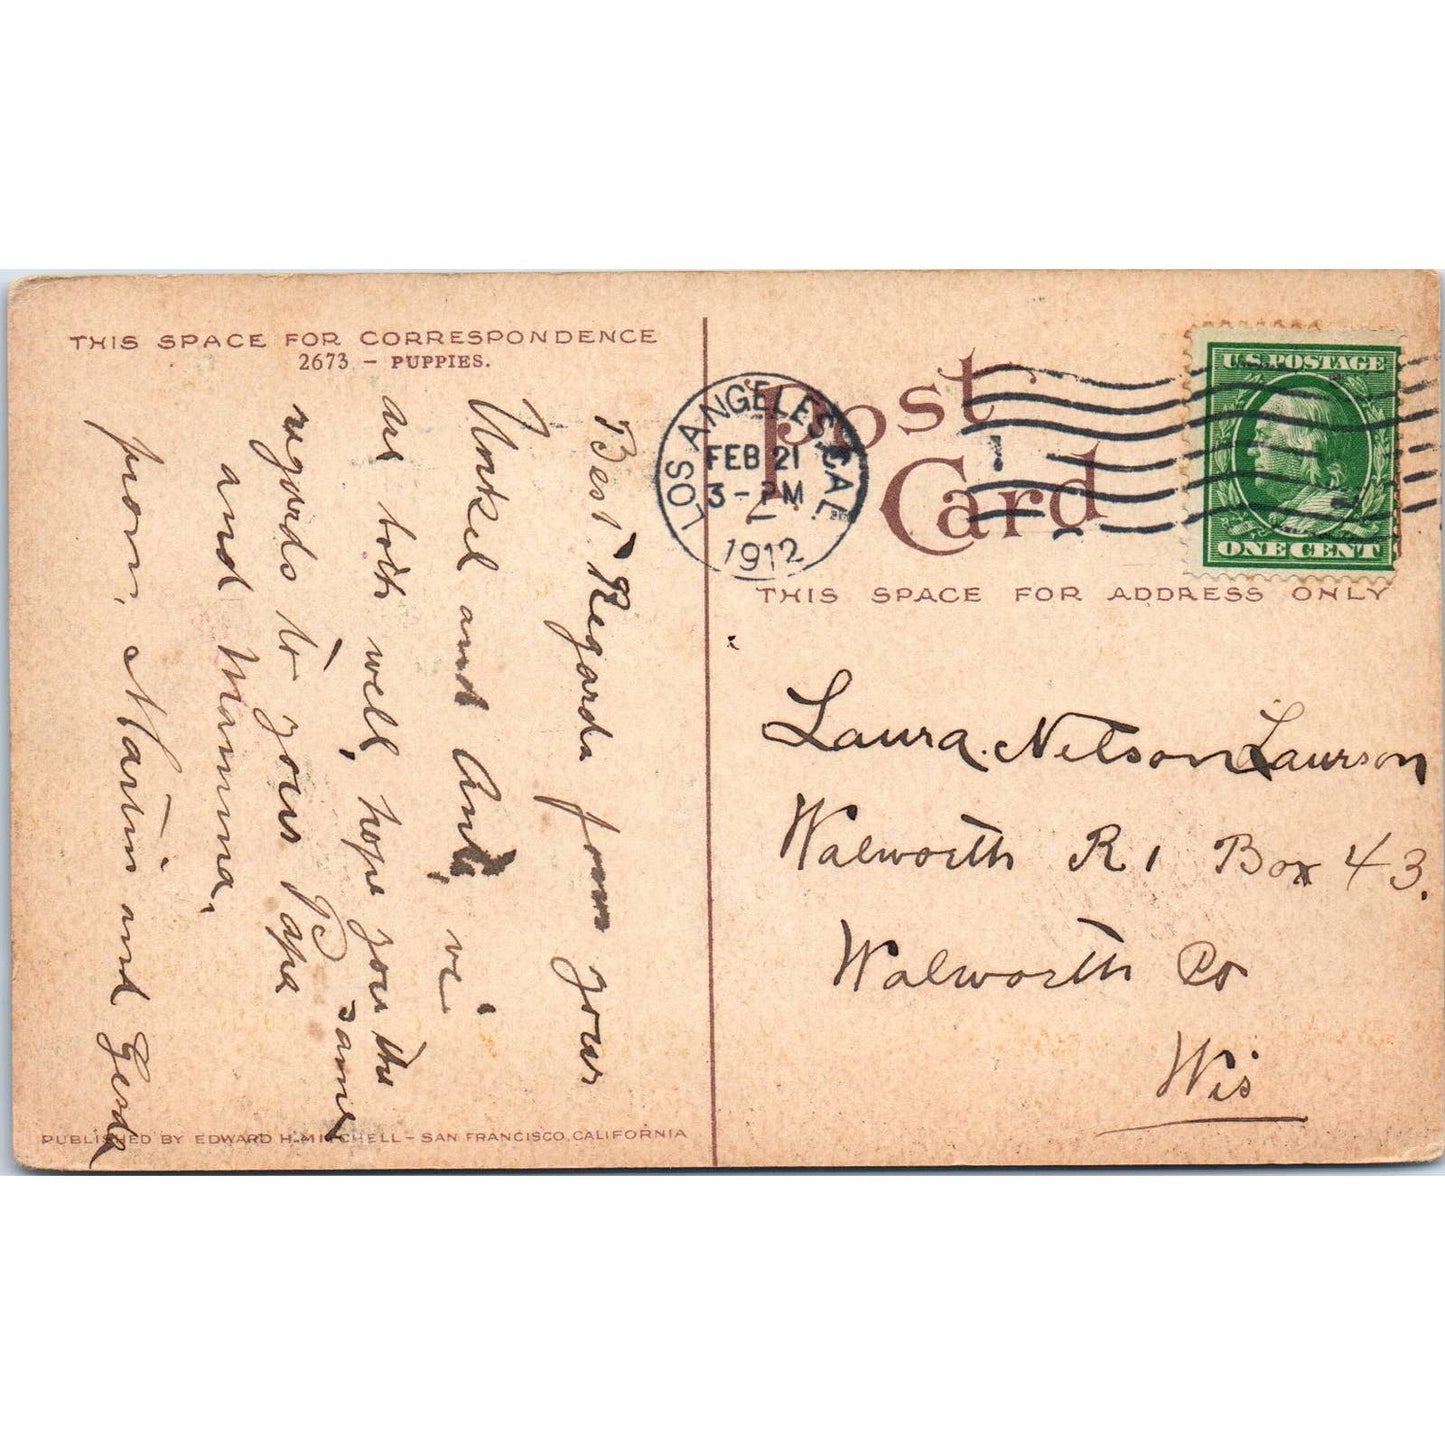 THIS SPACE FOR CORRESPONDENCE
2673 – PUPPIES.
Best Regards from your
Unkel and Ant, vi
are both well, hope you the
same
regards to your Papa
and Mamma,
from, Martin and Gerda
PUBLISHED BY EDWARD H. MITCHELL – SAN FRANCISCO, CALIFORNIA
Post
Card
LOS ANGELES, CAL.
FEB 21
3 - PM
1912
1
U.S. POSTAGE
ONE CENT
THIS SPACE FOR ADDRESS ONLY
Laura. Nelson Laurson
Walworth R 1 Box 43.
Walworth Co
Wis